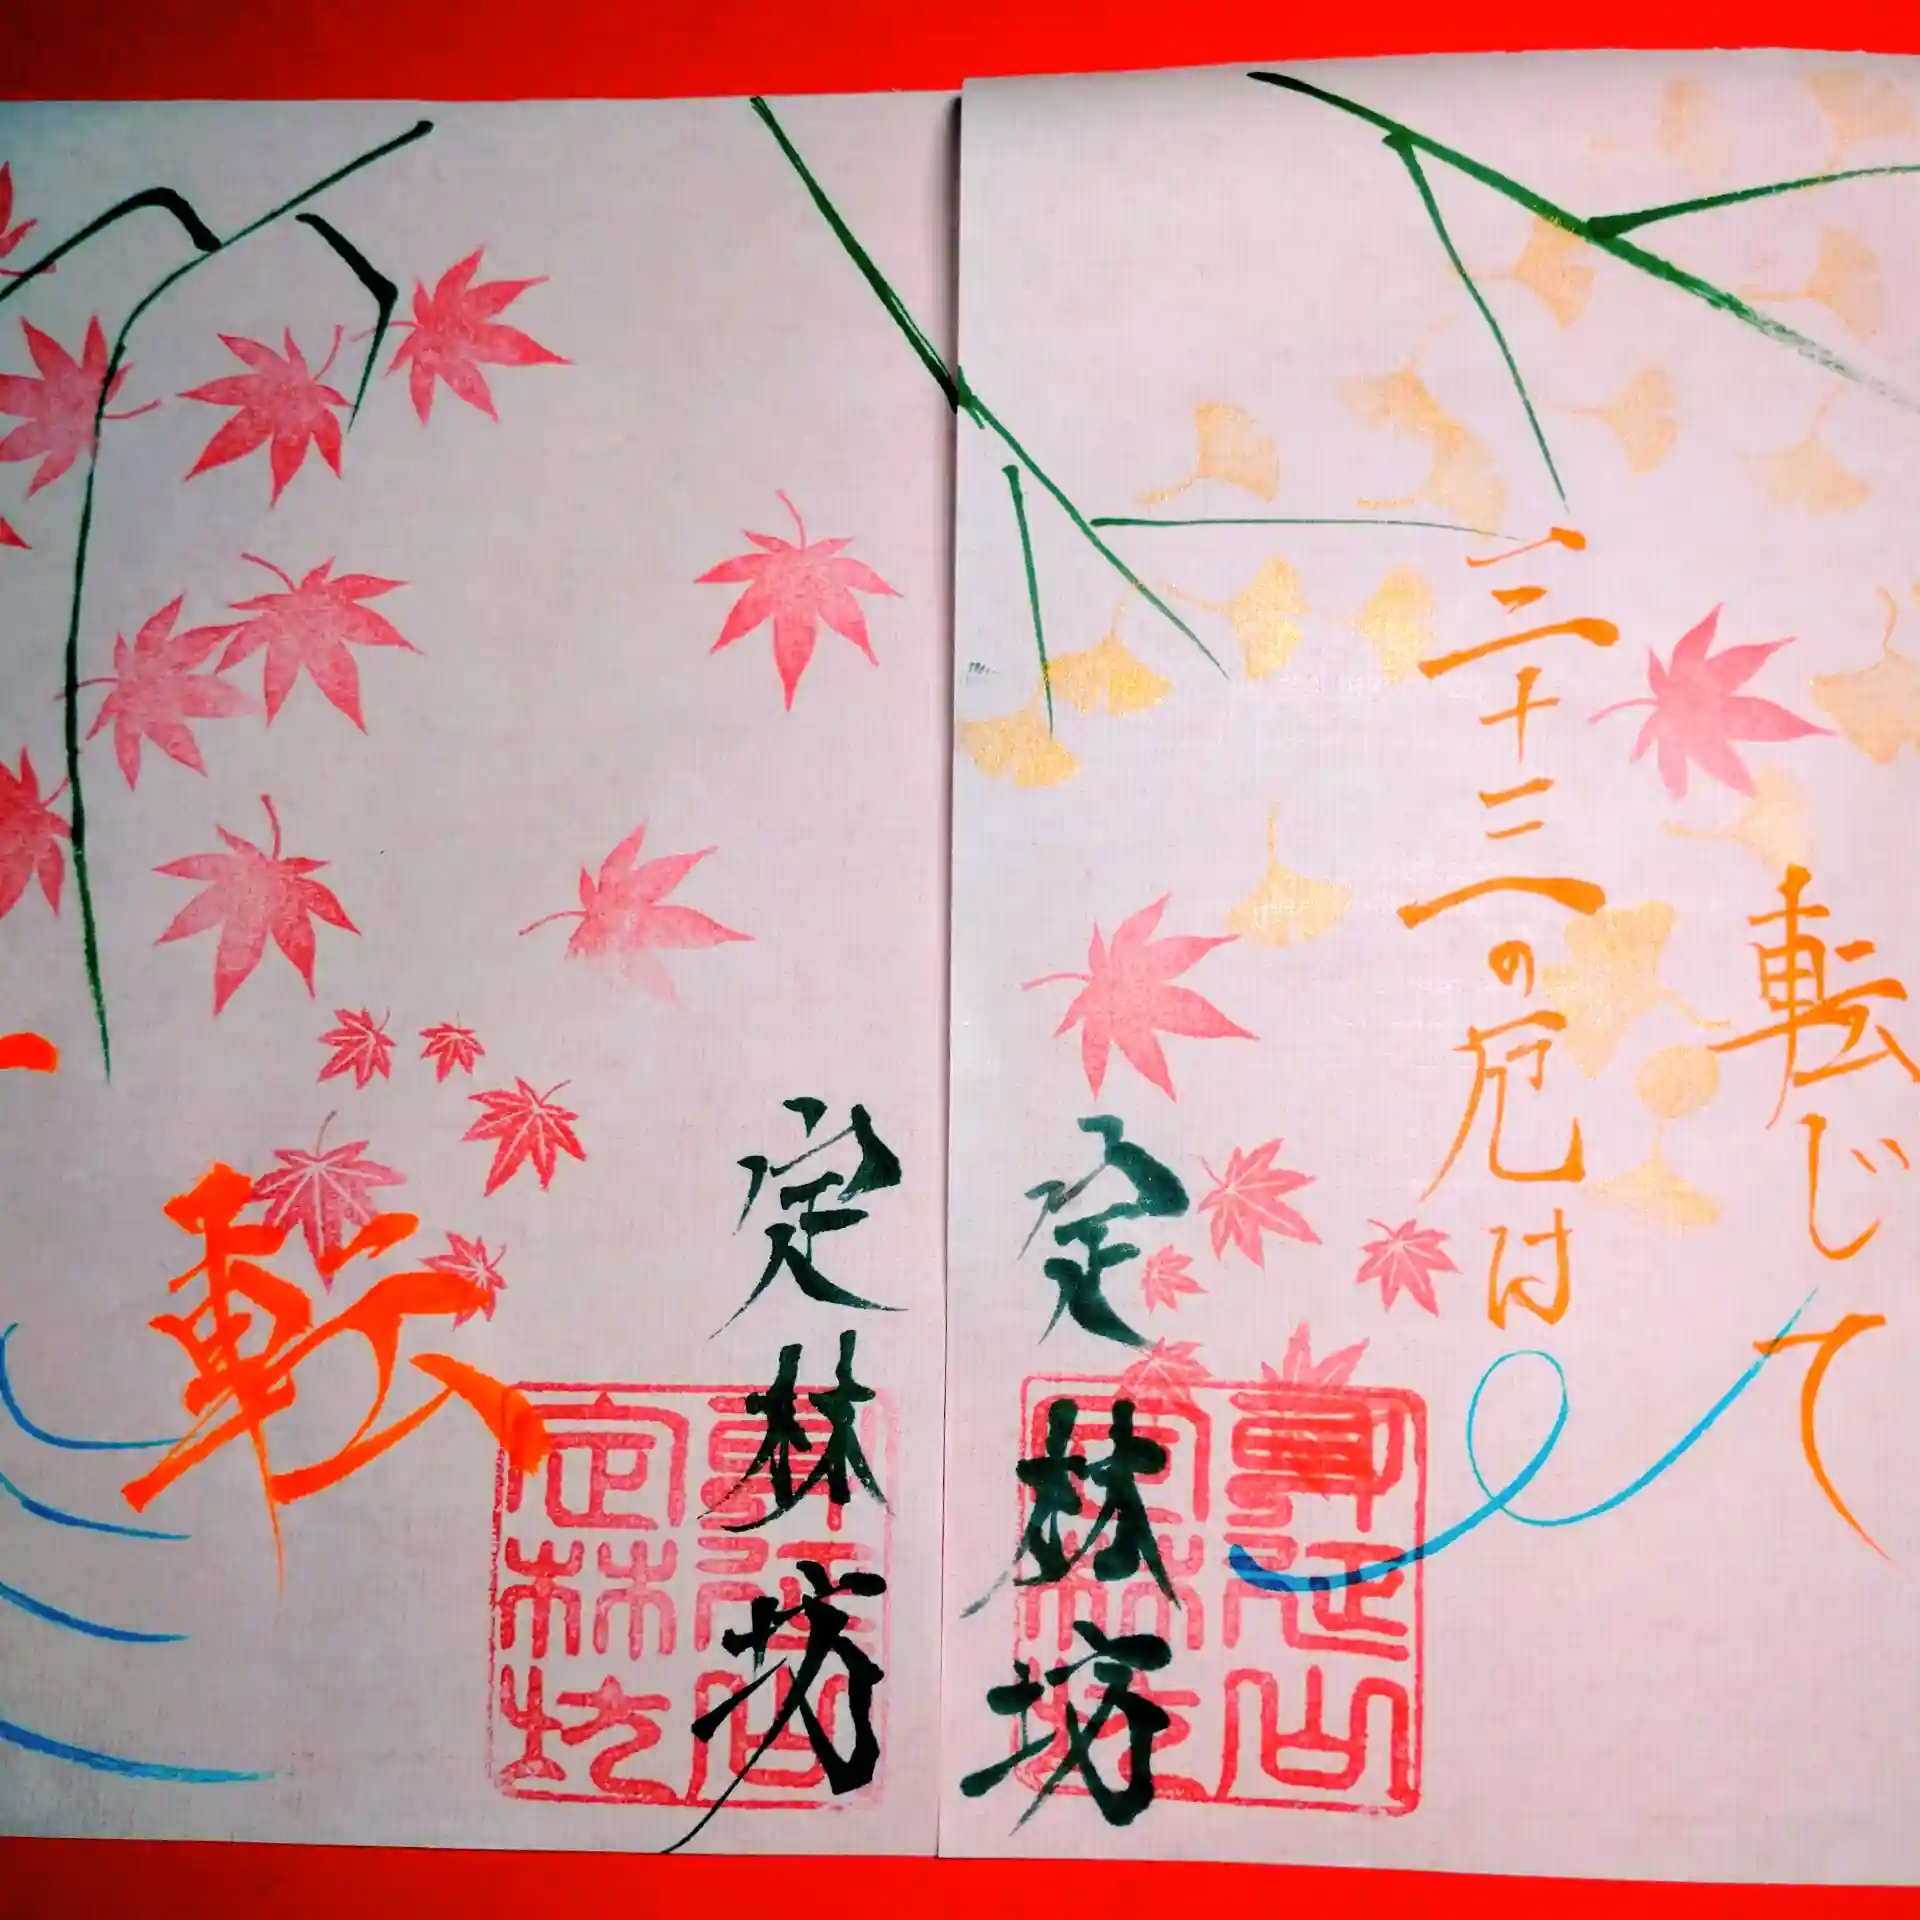 転じて
三十三の厄は
定林坊
身延山
定林坊
定林坊
身延山
定林坊
転